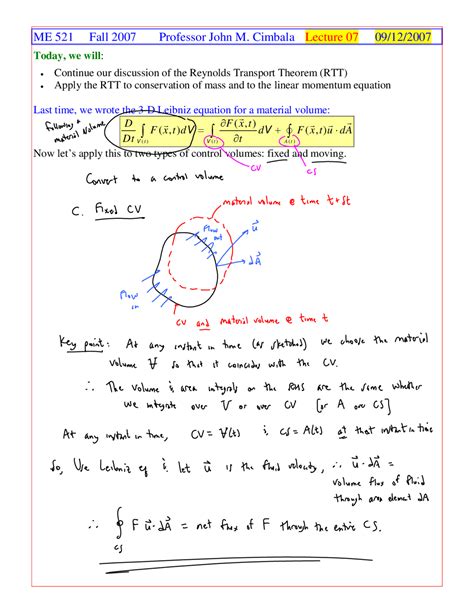 ME 521 Fall 2007 Professor John M. Cimbala Lecture 07 09/12/2007
Today, we will:
• Continue our discussion of the Reynolds Transport Theorem (RTT)
• Apply the RTT to conservation of mass and to the linear momentum equation
Last time, we wrote the 3-D Leibniz equation for a material volume:
Following a
material volume
D/Dt ∫_V(t) F(x⃗,t)dV = ∫_V(t) ∂F(x⃗,t)/∂t dV + ∮_A(t) F(x⃗,t)u⃗·dA⃗
Now let's apply this to two types of control volumes: fixed and moving.
CV CS
Convert to a control volume
C. Fixed CV
material volume @ time t+δt
Flow
out
u⃗
dA⃗
Flow
in
CV and material volume @ time t
Key point: At any instant in time (as sketched) we choose the material
volume V so that it coincides with the CV.
∴ The volume & area integrals on the RHS are the same whether
we integrate over V or over CV [or A or CS]
At any instant in time, CV = V(t) & CS = A(t) at that instant in time
So, Use Leibniz eq & let u⃗ is the fluid velocity, ∴ u⃗·dA⃗ =
volume flux of fluid
through area element dA
∴ ∮_CS F u⃗·dA⃗ = net flux of F through the entire CS.